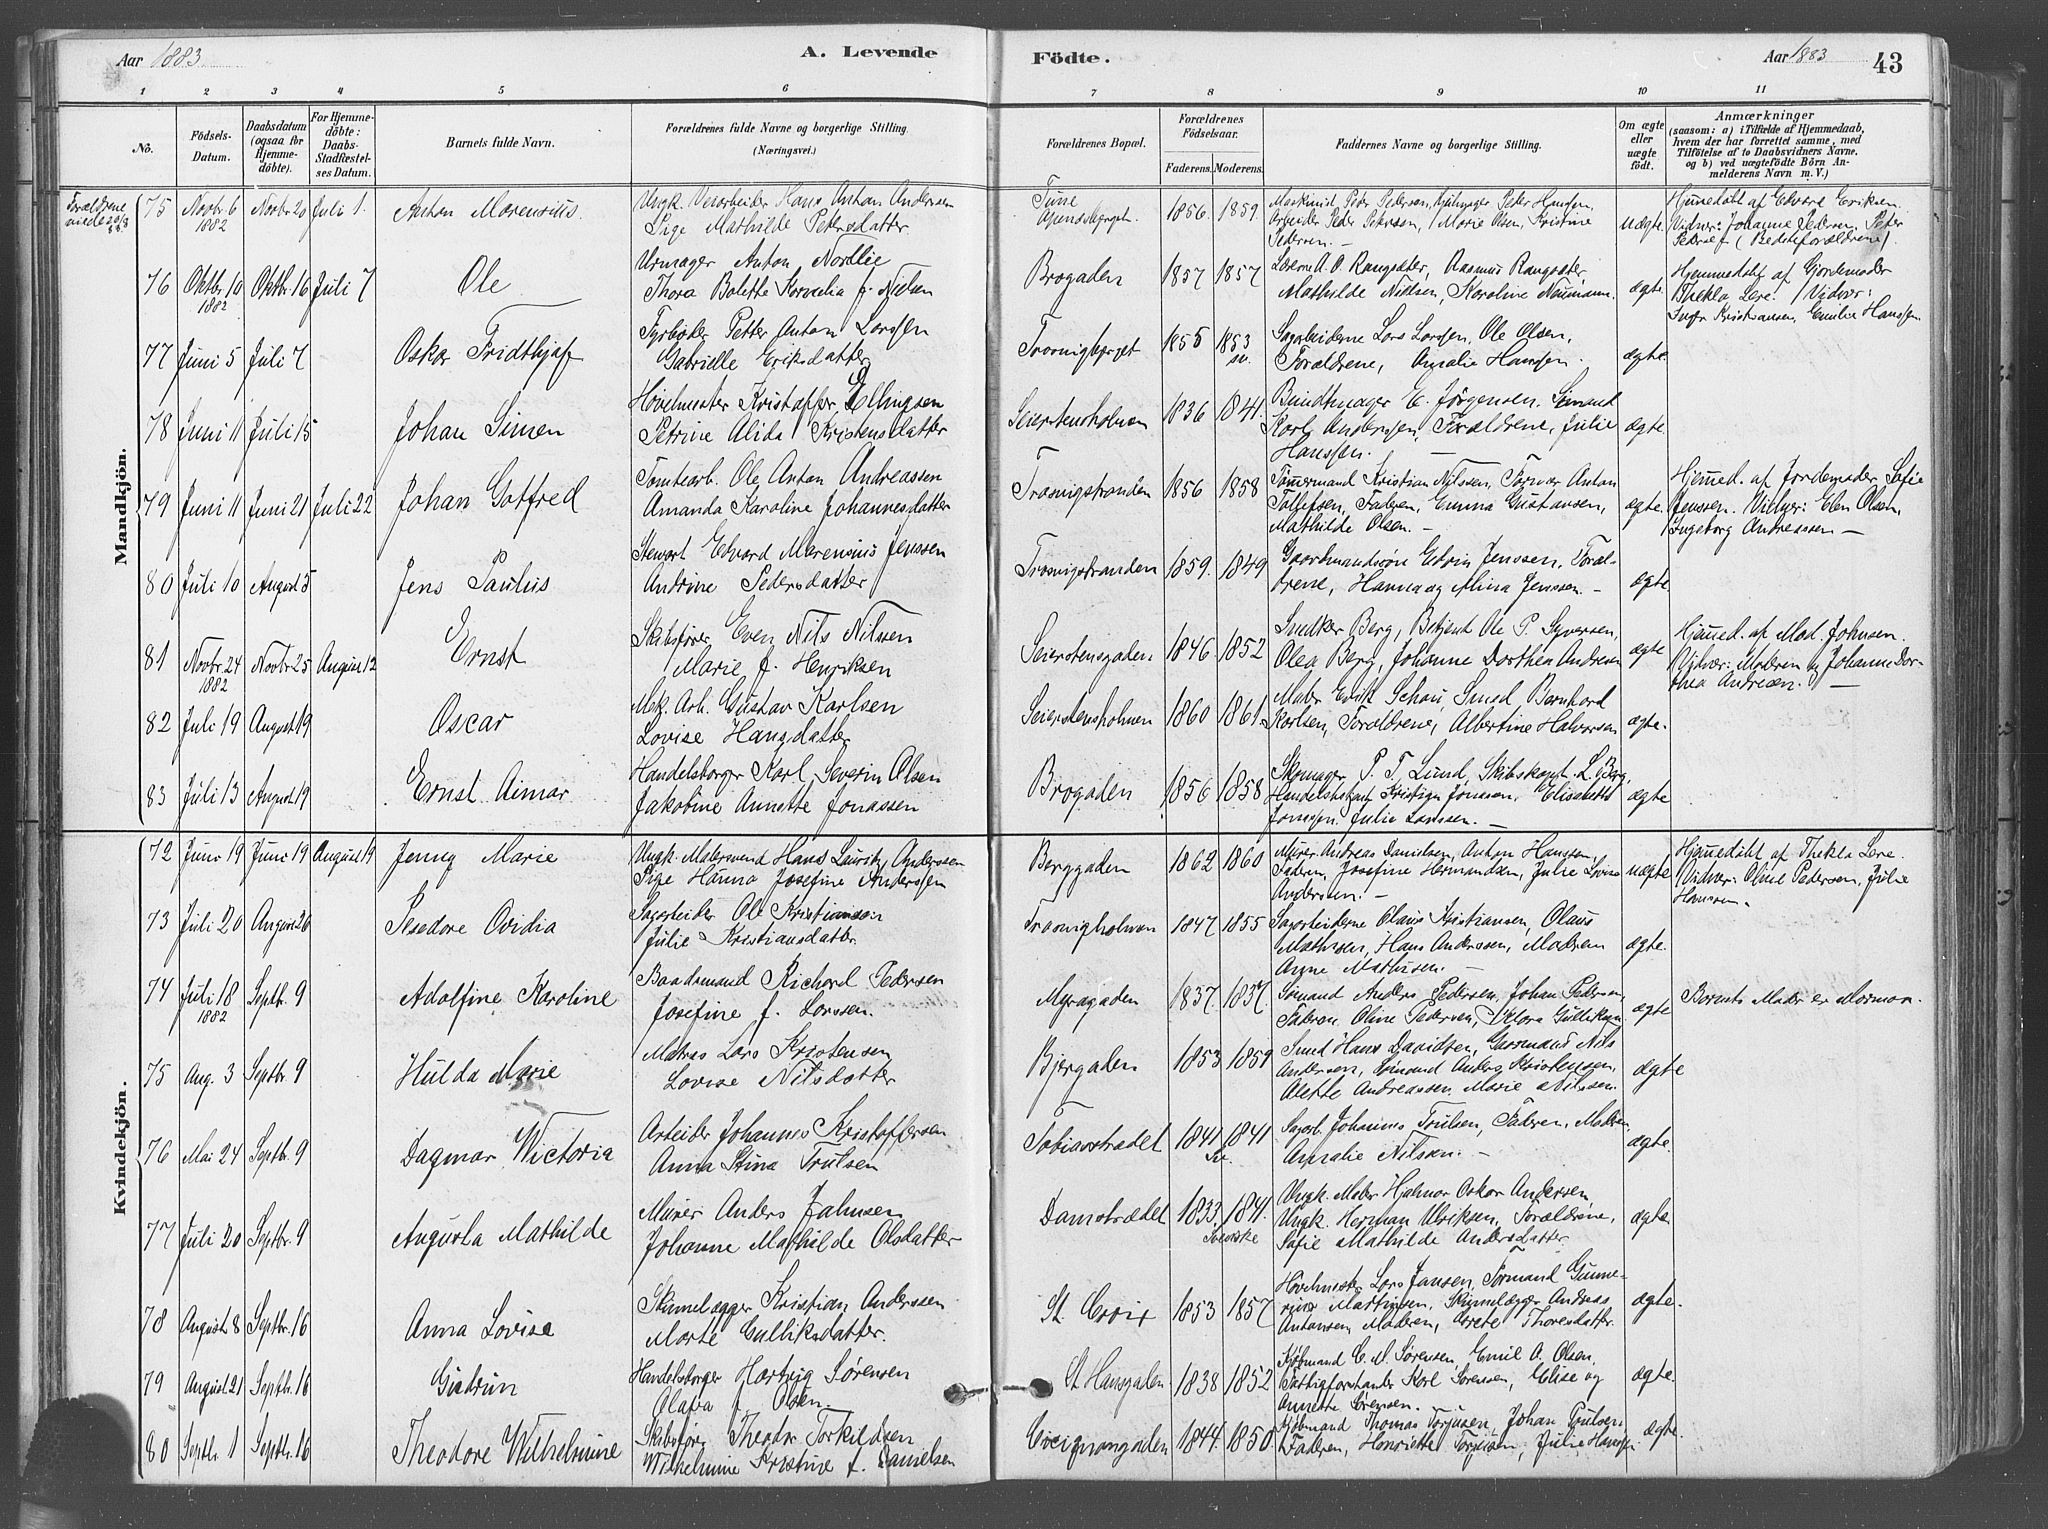 Aar 1883.
A. Levende
Födte.
Aar 1883
43
1 2 3 4 5 6 7 8 9 10 11
No.
Födsels-Datum.
Daabsdatum (ogsaa for Hjemmedöbte).
For Hjemmedöbte: Daabs-Stadfæstelses Datum.
Barnets fulde Navn.
Forældrenes fulde Navne og borgerlige Stilling. (Næringsvei.)
Forældrenes Bopæl.
Forældrenes Födselsaar.
Faderens. Moderens.
Faddernes Navne og borgerlige Stilling.
Om ægte eller uægte født.
Anmærkninger
(saasom: a) i Tilfælde af Hjemmedaab, hvem der har forrettet samme, med Tilföielse af to Daabsvidners Navne, og b) ved uægtefödte Börn Anmelderens Navn m. V.)
Mandkjön.
Forældrene
75 Novbr. 6 1882 Novbr 20 Juli 1.
Ungk. Hans Anton Andersen
Pige Mathilde Petersdatter.
Tune
1856. 1859.
Arbeider Peder Pedersen, Marie Olsen, Kristine
Pedersen. –
uægte
Hjemmedøbt af Edvard Eriksen.
Vidner: Johanne Pedersen, Peter
Pedersen (Bedsteforældrene).
76 Oktbr 10 1882 Oktbr 16 Juli 7
Ole
Urmager Anton Nordlie
Thora Bolette Kornelia f. Nielsen
Brogaden
1857 1857
Mathilde Nielsen, Karoline Naumann.
ægte
Hjemmedøbt af Gjordemoder
Thekla Lere. Vidner:
Inger Kristiansen, Emilie Hanssen
77 Juni 5 Juli 7
Oskar Fridthjof
Fyrbøder Petter Anton Larssen
Gabrielle Eriksdatter
Trosvigbjerget
1855 1853 sv.
Sagarbeiderne Lars Larssen, Ole Olsen,
Forældrene, Amalie Hanssen.
ægte
78 Juni 11 Juli 15
Johan Simen
Høvelmester Kristoffer Ellingsen
Petrine Alida Kristensdatter
Seierstensholmen
1836 1841.
Bundtmager E. Jörgensen, Sömand
Karl Anderssen, Forældrene, Julie
Hanssen. –
ægte
79 Juni 11 Juni 21 Juli 22
Johan Gotfred
Tomtearb. Ole Anton Andreassen
Amanda Karoline Johannesdatter
Trosvigstranden
1856 1858
Tömmermand Kristian Nilssen, Anton
Tollefsen, Faderen, Emma Gustavsen,
Mathilde Olsen. –
ægte.
Hjemmed. af Jordemoder Sofie
Jenssen. Vidner: Elen Olsen,
Ingeborg Andreassen –
80 Juli 10 August 5
Jens Paulus
Stewart Edvard Marensius Jenssen
Andrine Pedersdatter
Trosvigstranden
1859. 1849
Gaardmandssøn Edvin Jenssen, Foræl-
drene, Hanna og Mina Jenssen. –
ægte
81 Novbr. 24 1882 Novbr 25 August 12
Ernst
Skibsfører Even Nils Nilssen
Marie f. Henriksen
Seierstensgaden
1846 1852
Snedker Berg, Betjent Ole P. Syversen,
Olea Berg, Johanne Dorthea Andresen
ægte
Hjemmed. af Mad. Johnsen.
Vidner: Moderen og Johanne Dor-
thea Andresen. –
82 Juli 19 August 19
Oscar
Mek. Arb. Gustav Karlsen
Lovise Hansdatter
Seierstensholmen
1860 1861.
Maler Erik Schou, Smed Bernhard
Karlsen, Forældrene, Albertine Halvorsen
ægte.
83 Juli 13 August 19
Ernst Aimar
Handelsborger Karl Severin Olsen
Jakobine Annette Jonassen
Brogaden
1856 1858
Skomager P. T. Lund, Skibskapt. L. Berg,
Kristian Jonssen, Elisabeth
Jonssen, Julie Larssen. –
ægte
Kvindekjön.
72 Juni 19 Juni 19 August 19
Jenny Marie
Ungk. Malersvend Hans Lauritz Anderssen
Pige Hanna Josefine Anderssen
Berggaden
1862 1860
Murer Andreas Danielsen, Anton Hanssen,
Faderen, Josefine Hermandsen, Julie Lovise
Andersen. –
uægte
Hjemmedøbt af Thekla Lere.
Vidner: Pedersen, Julie
Hanssen.
73 Juli 20 August 26
Isedore Ovidia
Sagarbeider Ole Kristiansen
Julie Kristiansdatter
Trosvigholmen
1847 1855
Sagarbeiderne Olaus Kristiansen, Olaus
Mathisen, Hans Anderssen, Moderen
Anne Mathisen. –
ægte.
74 Juli 18 1882 Septbr. 9
Adolfine Karoline
Baadsmand Richard Pedersen
Josefine f. Larssen.
Myragaden
1837. 1837.
Sømand Anders Pedersen, Johan Pedersen,
Faderen, Oline Pedersen, Gulliksen.
ægte
Barnets Moder er Mormon.
75 Aug. 3 Septbr. 9
Hulda Marie
Matros Lars Kristensen
Lovise Nilsdatter
Bjergaden
1853 1859
Smed Hans Davidsen, Nils
Andersen, Sömand Anders Kristensen,
Alette Andreassen, Marie Nilssen.
ægte
76 Mai 24 Septbr. 9
Dagmar Wictoria
Arbeider Johannes Kristoffersen
Anna Stina Trulsen
Tobiasstrædet
1841 1841
Sv.
Sagarb. Johannes Trulsen, Faderen, Moderen
Amalie Nilsen. –
ægte.
77 Juli 20 Septbr. 9
Augusta Mathilde
Murer Anders Jahnsen
Johanne Mathilde Olsdatter
Damstrædet
1833. 1841.
Svenske
Ungk. Maler Hjalmar Oskar Andersen
Ungk. Herman Ulriksen, Forældrene,
Sofie Mathilde Andersdatter
ægte
78 August 8 Septbr. 16
Anna Lovise
Skinnelægger Kristian Anderssen
Marte Gulliksdatter.
St. Croix
1853 1857
Høvelmester Lars Jansen, Formand Gunne-
rius Martinsen, Skinnelægger Andreas
Antonsen, Moderen, Grete Thoresdatter
ægte.
79 August 21 Septbr. 16
Gudrun
Handelsborger Hartvig Sørensen
Olava f. Olsen.
St Hansgaden
1838 1852
Kjøbmand C. M. Sørensen, Emil A. Olsen,
Fattigforstander Karl Sørensen, Elise og
Annette Sørensen.
ægte.
80 Septbr. 1 Septbr. 16
Theodore Wilhelmine
Skibsfør. Theodor Torkildsen
Wilhelmine Kristine f. Danielsen
1844. 1850.
Kjøbmand Thomas Torjusen, Johan Poulsen,
Faderen, Henriette Torjusen, Julie Hanssen
ægte.